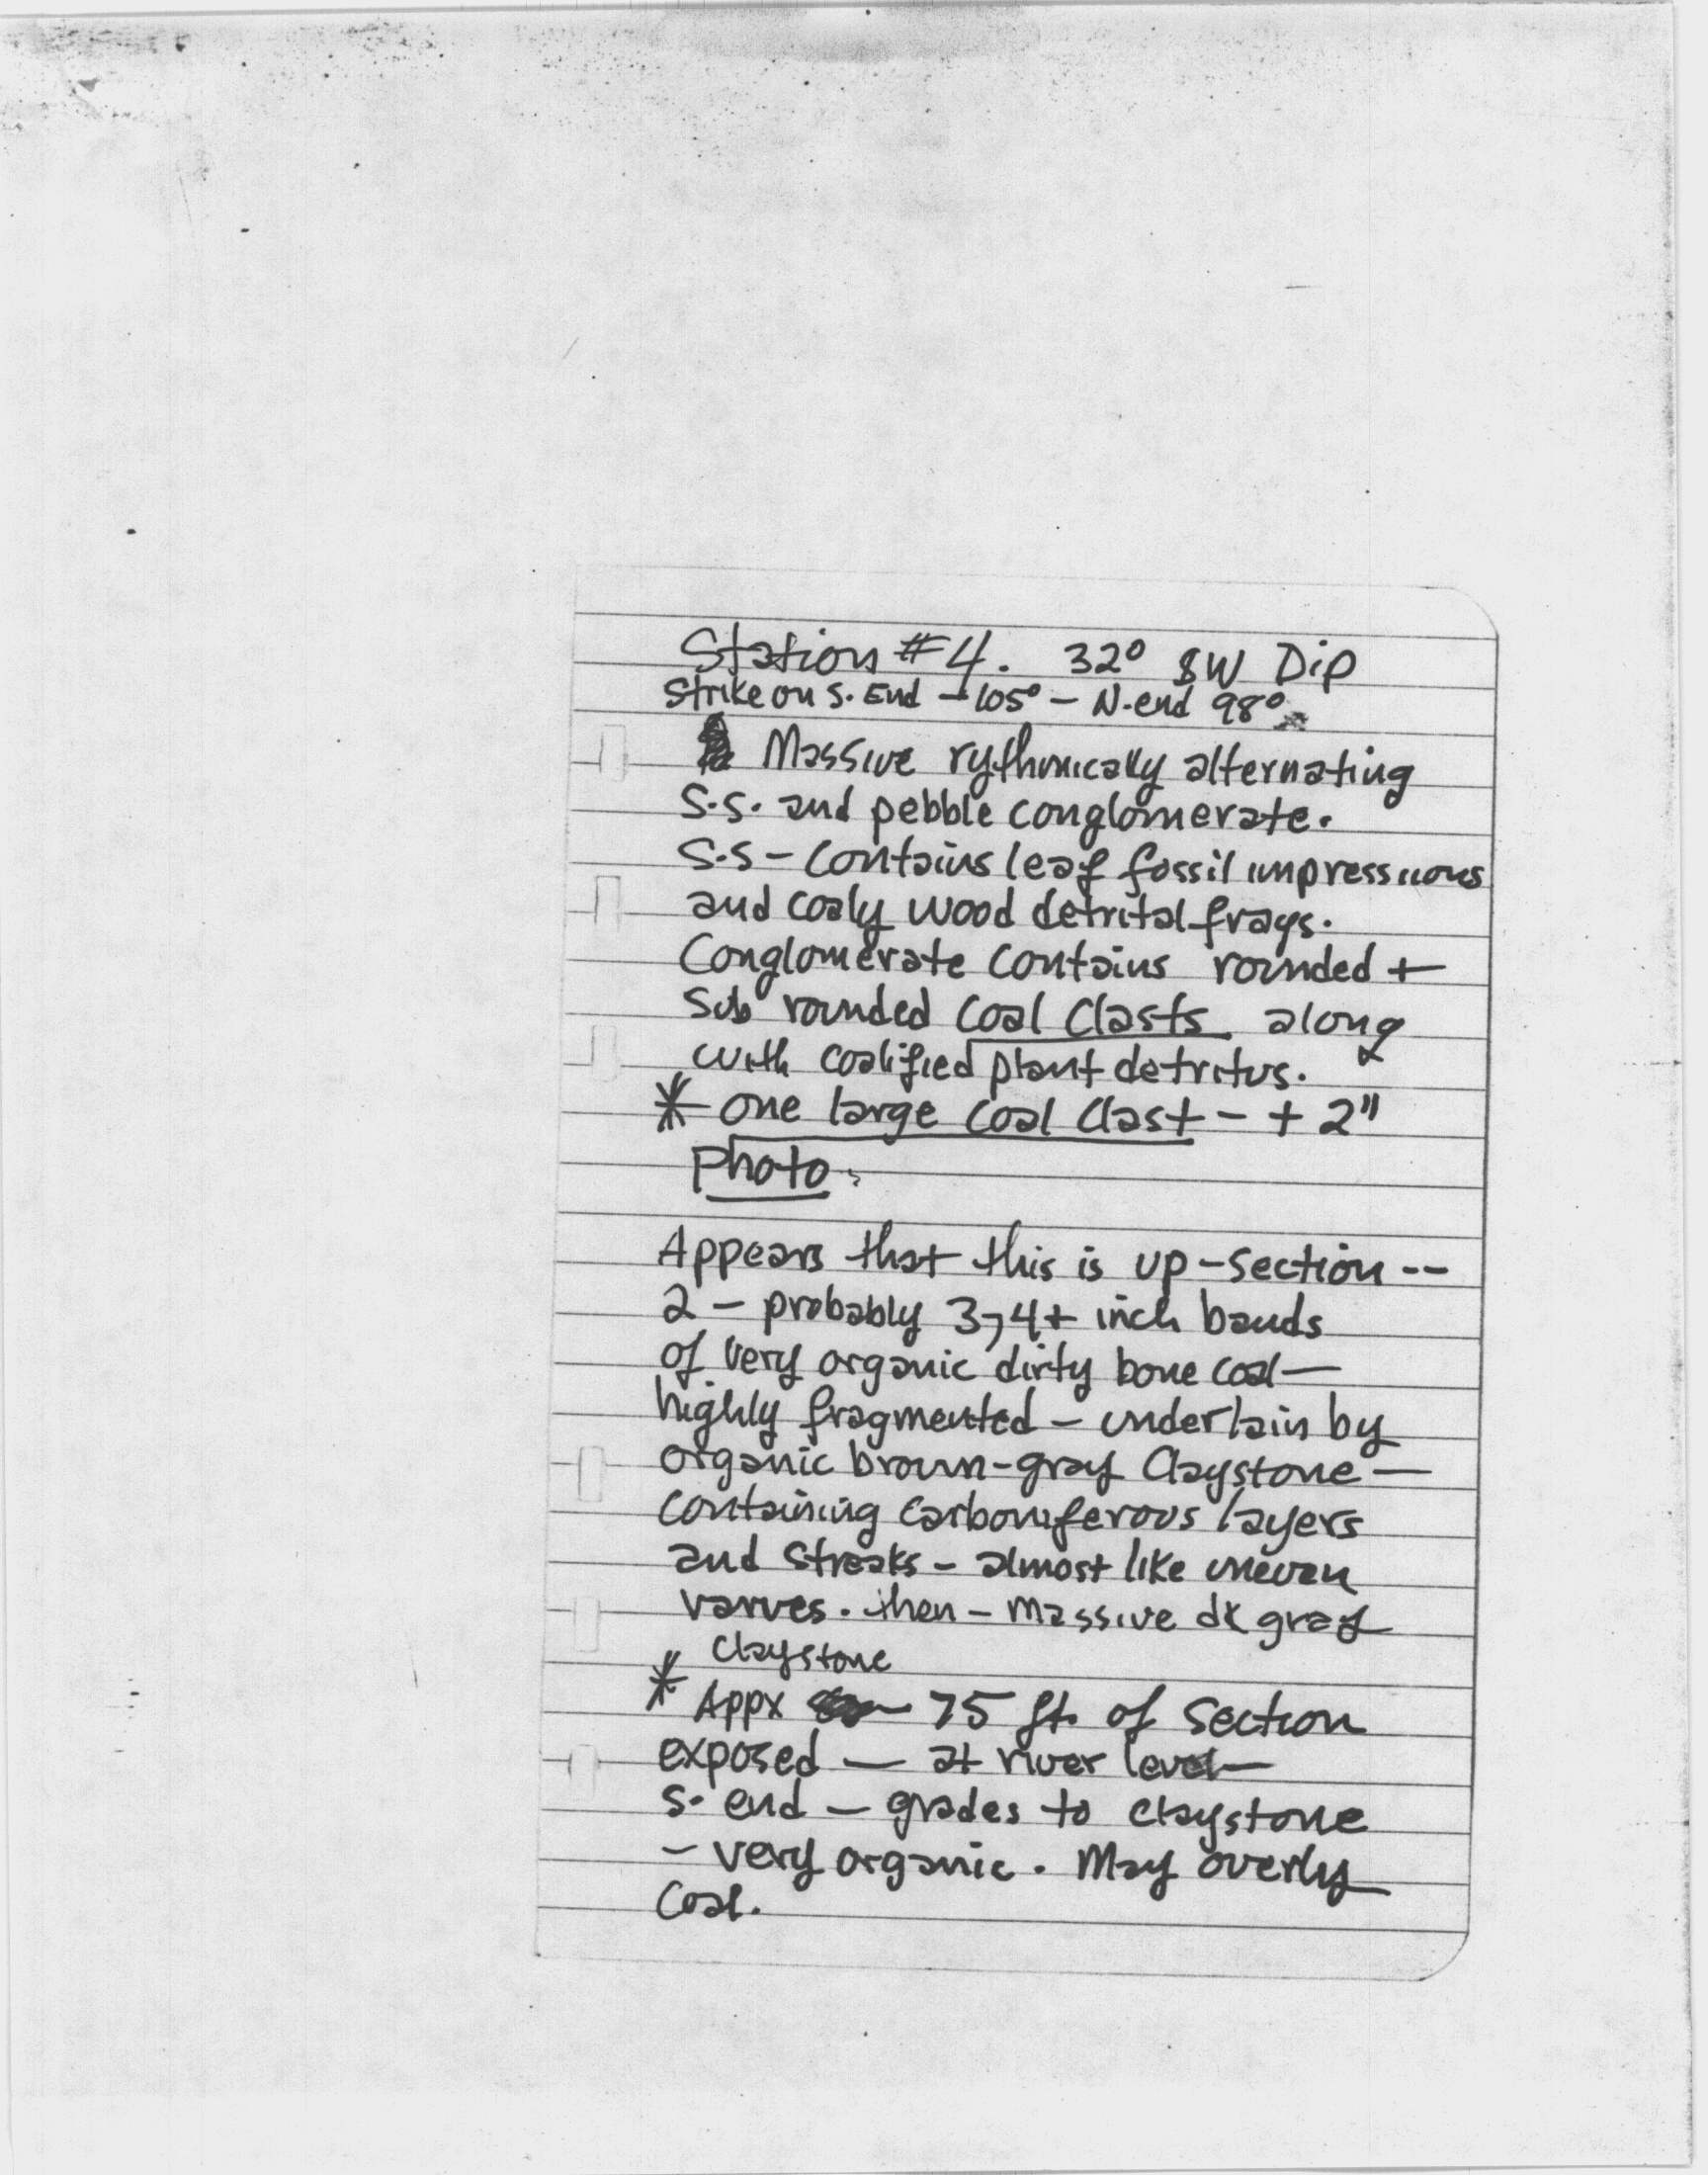 Station #4. 32° SW Dip
Strike on S. End – 105° – N. end 98°
Massive rythmically alternating
S.S. and pebble conglomerate.
S.S – contains leaf fossil impressions
and coaly wood detrital frags.
Conglomerate contains rounded +
Sub rounded coal clasts along
with coalified plant detritus.
* one large coal clast – + 2"
Photo.
Appears that this is up-section --
2 – probably 3, 4+ inch bands
of very organic dirty bone coal –
highly fragmented – underlain by
organic brown-gray claystone –
containing carboniferous layers
and streaks – almost like uneven
varves. then – massive dk gray
claystone
* Appx 75 ft. of section
exposed – at river level –
S. end – grades to claystone
– very organic. May overly
coal.